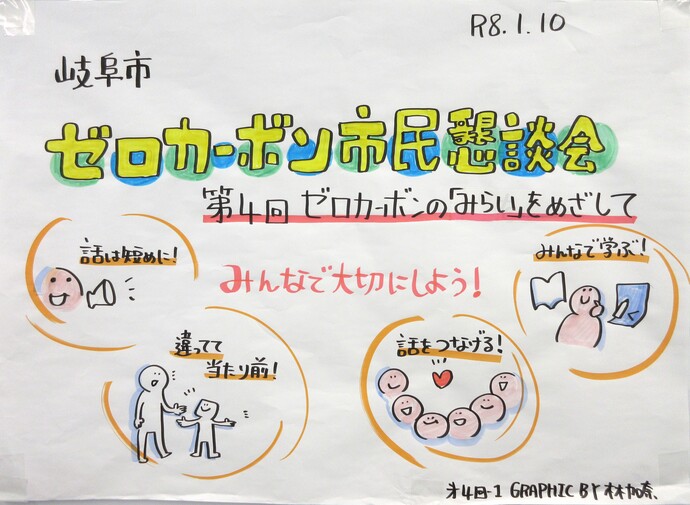 R8.1.10
岐阜市
ゼロカーボン市民懇談会
第4回 ゼロカーボンの「みらい」をめざして
話は短めに!
みんなで大切にしよう!
みんなで学ぶ!
違ってて
当たり前!
話をつなげる!
第4回-1 GRAPHIC BY 林加奈